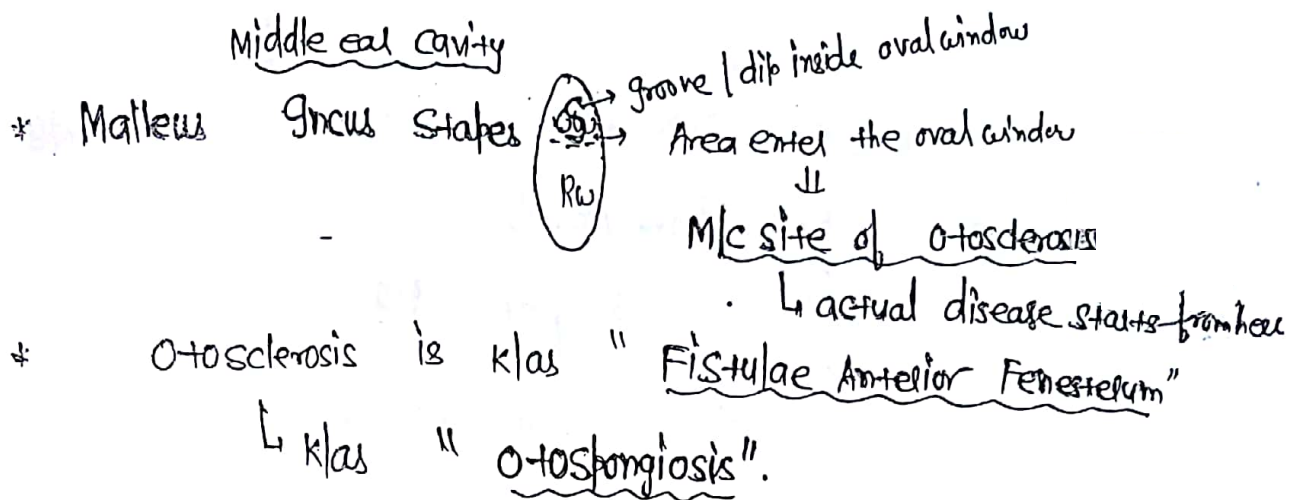 Middle ear cavity
* Malleus Incus Stapes OW → groove / dip inside oval window
→ Area enter the oval window
RW
⇓
M/c site of otosclerosis
↳ actual disease starts from here
* Otosclerosis is k/as "Fistulae Anterior Fenesterum"
↳ k/as "Otospongiosis".